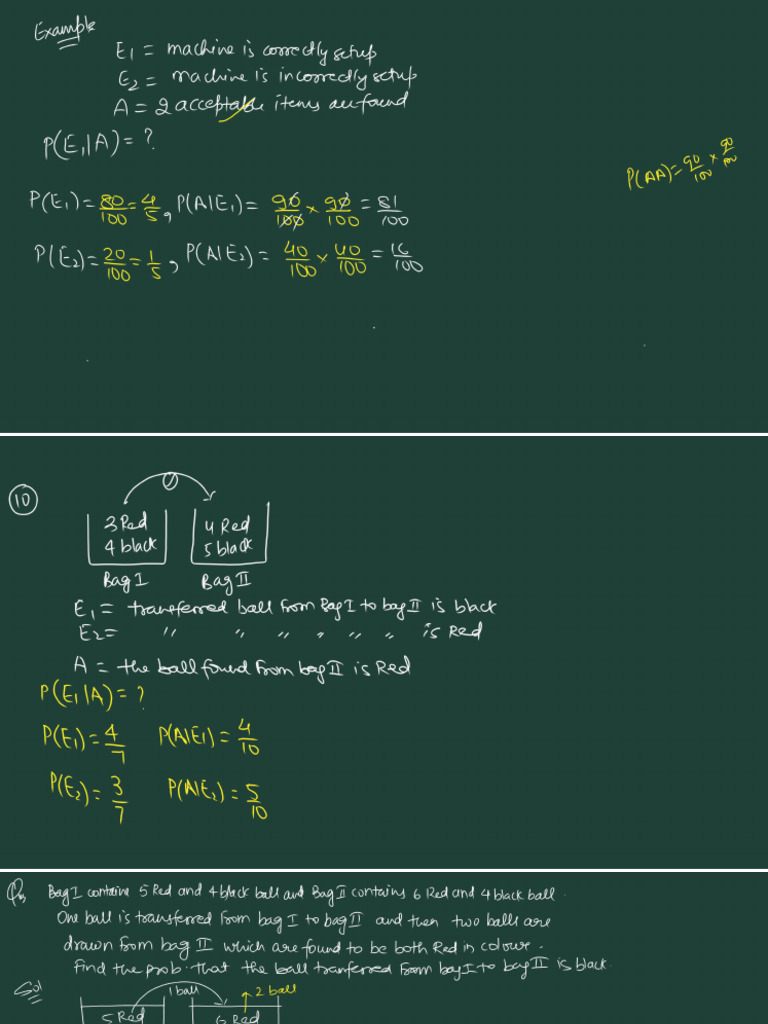 Example
E1 = machine is correctly setup
E2 = machine is incorrectly setup
A = 2 acceptable items are found
P(E1|A) = ?
P(AA) = 90/100 × 90/100
P(E1) = 80/100 = 4/5, P(A|E1) = 90/100 × 90/100 = 81/100
P(E2) = 20/100 = 1/5, P(A|E2) = 40/100 × 40/100 = 16/100
10
3 Red 4 Red
4 black 5 black
Bag I Bag II
E1 = transferred ball from Bag I to bag II is black
E2 = " " " " " " is Red
A = the ball found from bag II is Red
P(E1|A) = ?
P(E1) = 4/7 P(A|E1) = 4/10
P(E2) = 3/7 P(A|E2) = 5/10
Qus Bag I contains 5 Red and 4 black ball and Bag II contains 6 Red and 4 black ball.
One ball is transferred from bag I to bag II and then two balls are
drawn from bag II which are found to be both Red in colour.
find the prob. that the ball tranferred from bag I to bag II is black.
Sol
1 ball 2 ball
5 Red 6 Red